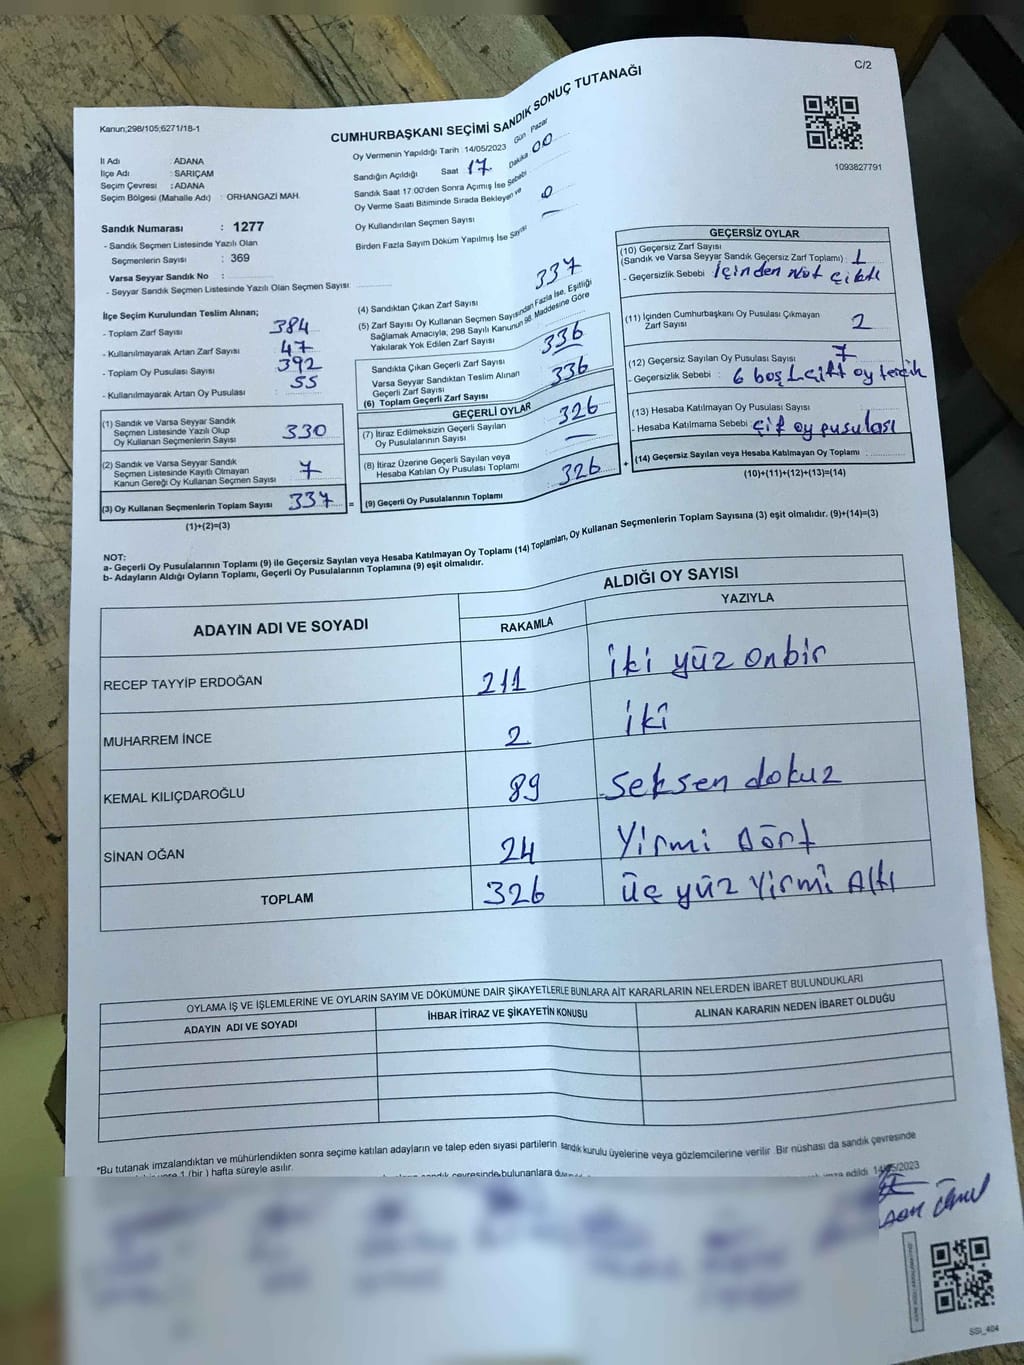 C/2
Kanun;298/105;6271/18-1
CUMHURBAŞKANI SEÇİMİ SANDIK SONUÇ TUTANAĞI
1093827791
İl Adı : ADANA
İlçe Adı : SARIÇAM
Seçim Çevresi : ADANA
Seçim Bölgesi (Mahalle Adı) : ORHANGAZI MAH.
Sandık Numarası : 1277
- Sandık Seçmen Listesinde Yazılı Olan
Seçmenlerin Sayısı : 369
Varsa Seyyar Sandık No :
- Seyyar Sandık Seçmen Listesinde Yazılı Olan Seçmen Sayısı
Oy Vermenin Yapıldığı Tarih : 14/05/2023 Gün : Pazar
Sandığın Açıldığı Saat 17 Dakika 00
Sandık Saat 17:00'den Sonra Açımış İse Sebebi
Oy Verme Saati Bitiminde Sırada Bekleyen ve
Oy Kullandırılan Seçmen Sayısı 0
Birden Fazla Sayım Döküm Yapılmış İse Sayısı —
İlçe Seçim Kurulundan Teslim Alınan;
- Toplam Zarf Sayısı 384
- Kullanılmayarak Artan Zarf Sayısı 47
- Toplam Oy Pusulası Sayısı 392
- Kullanılmayarak Artan Oy Pusulası 55
(1) Sandık ve Varsa Seyyar Sandık
Seçmen Listesinde Yazılı Olup
Oy Kullanan Seçmenlerin Sayısı 330
(2) Sandık ve Varsa Seyyar Sandık
Seçmen Listesinde Kayıtlı Olmayan
Kanun Gereği Oy Kullanan Seçmen Sayısı 7
(3) Oy Kullanan Seçmenlerin Toplam Sayısı 337 =
(1)+(2)=(3)
(4) Sandıktan Çıkan Zarf Sayısı 337
(5) Zarf Sayısı Oy Kullanan Seçmen Sayısından Fazla İse, Eşitliği
Sağlamak Amacıyla, 298 Sayılı Kanunun 98. Maddesine Göre
Yakılarak Yok Edilen Zarf Sayısı
Sandıkta Çıkan Geçerli Zarf Sayısı 336
Varsa Seyyar Sandıktan Teslim Alınan
Geçerli Zarf Sayısı
(6) Toplam Geçerli Zarf Sayısı 336
GEÇERLİ OYLAR
(7) İtiraz Edilmeksizin Geçerli Sayılan
Oy Pusulalarının Sayısı 326
(8) İtiraz Üzerine Geçerli Sayılan veya
Hesaba Katılan Oy Pusulası Toplamı —
(9) Geçerli Oy Pusulalarının Toplamı 326 +
GEÇERSİZ OYLAR
(10) Geçersiz Zarf Sayısı
(Sandık ve Varsa Seyyar Sandık Geçersiz Zarf Toplamı) : 1
- Geçersizlik Sebebi içinden not çıktı
(11) İçinden Cumhurbaşkanı Oy Pusulası Çıkmayan
Zarf Sayısı 2
(12) Geçersiz Sayılan Oy Pusulası Sayısı : 7
- Geçersizlik Sebebi : 6 boş 1 çift oy tercih
(13) Hesaba Katılmayan Oy Pusulası Sayısı
- Hesaba Katılmama Sebebi çift oy pusulası
(14) Geçersiz Sayılan veya Hesaba Katılmayan Oy Toplamı
(10)+(11)+(12)+(13)=(14)
NOT:
a- Geçerli Oy Pusulalarının Toplamı (9) ile Geçersiz Sayılan veya Hesaba Katılmayan Oy Toplamı (14) Toplamları, Oy Kullanan Seçmenlerin Toplam Sayısına (3) eşit olmalıdır. (9)+(14)=(3)
b- Adayların Aldığı Oyların Toplamı, Geçerli Oy Pusulalarının Toplamına (9) eşit olmalıdır.
ADAYIN ADI VE SOYADI ALDIĞI OY SAYISI
RAKAMLA YAZIYLA
RECEP TAYYİP ERDOĞAN 211 iki yüz onbir
MUHARREM İNCE 2 iki
KEMAL KILIÇDAROĞLU 89 seksen dokuz
SİNAN OĞAN 24 Yirmi Dört
TOPLAM 326 üç yüz Yirmi Altı
OYLAMA İŞ VE İŞLEMLERİNE VE OYLARIN SAYIM VE DÖKÜMÜNE DAİR ŞİKAYETLERLE BUNLARA AİT KARARLARIN NELERDEN İBARET BULUNDUKLARI
ADAYIN ADI VE SOYADI İHBAR İTİRAZ VE ŞİKAYETİN KONUSU ALINAN KARARIN NEDEN İBARET OLDUĞU
*Bu tutanak imzalandıktan ve mühürlendikten sonra seçime katılan adayların ve talep eden siyasi partilerin sandık kurulu üyelerine veya gözlemcilerine verilir. Bir nüshası da sandık çevresinde
1 (bir) hafta süreyle asılır.
14/05/2023
SSI_404